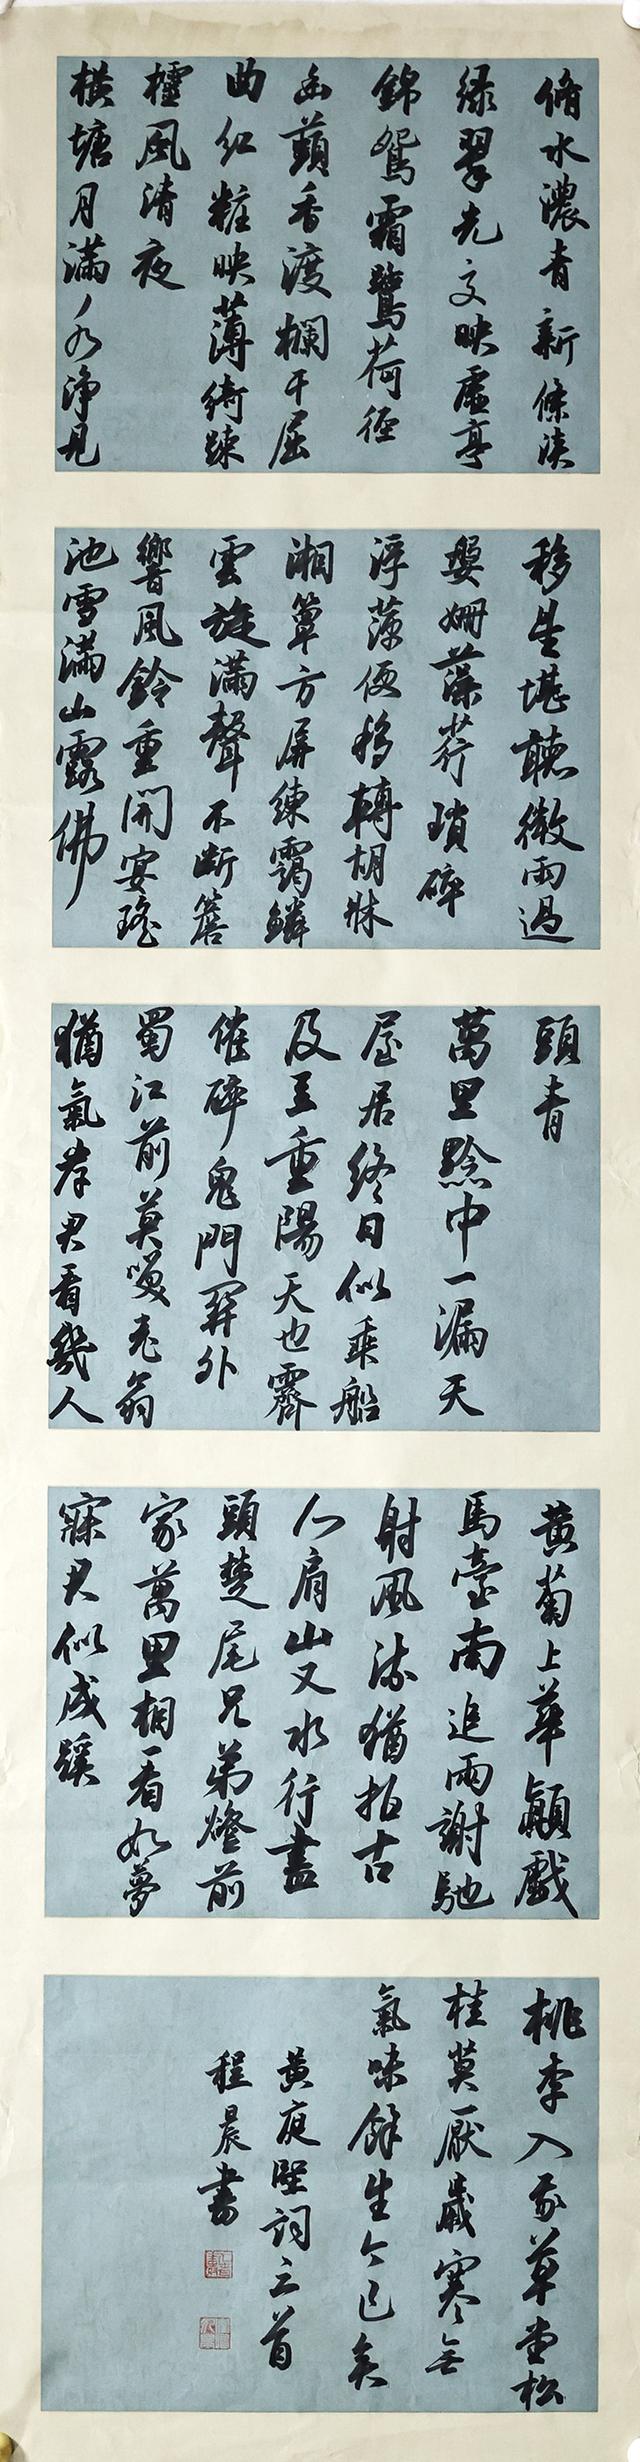 脩水濃青新條淡
绿翠光交映虚亭
錦鴛霜鷺荷徑
幽蘋香渡欄干屈
曲红粧映薄綺疎
櫺風清夜
横塘月滿水淨見
移星堪聽微雨過
媻姍藻荇瑣碎
浮萍便移轉胡牀
湘簟方屏練靄鱗
雲旋滿聲不斷簷
響風鈴重開宴瑤
池雪滿山露佛
頭青
萬里黔中一漏天
屋居終日似乘船
及至重陽天也霽
催碎鬼門關外
蜀江前莫笑老翁
猶氣岸君看幾人
黄菊上華顛戲
馬臺南追兩謝馳
射風流猶拍古
人肩山又水行盡
頭楚尾兄弟燈前
家萬里相看如夢
寐君似成蹊
桃李入我草堂松
桂莫厭歲寒無
氣味餘生今已矣
黄庭堅詞三首
程晨書